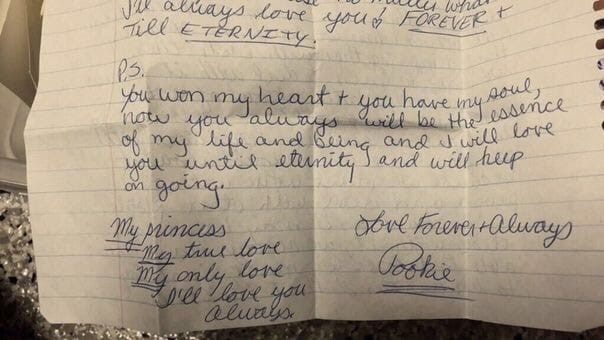 matter what
I'll always love you FOREVER +
Till ETERNITY.
P.S.
You won my heart + you have my soul,
now you always will be the essence
of my life and being and I will love
you until eternity and will keep
on going.
My princess
My true love
My only love
I'll love you
always.
Love Forever + Always
Pookie